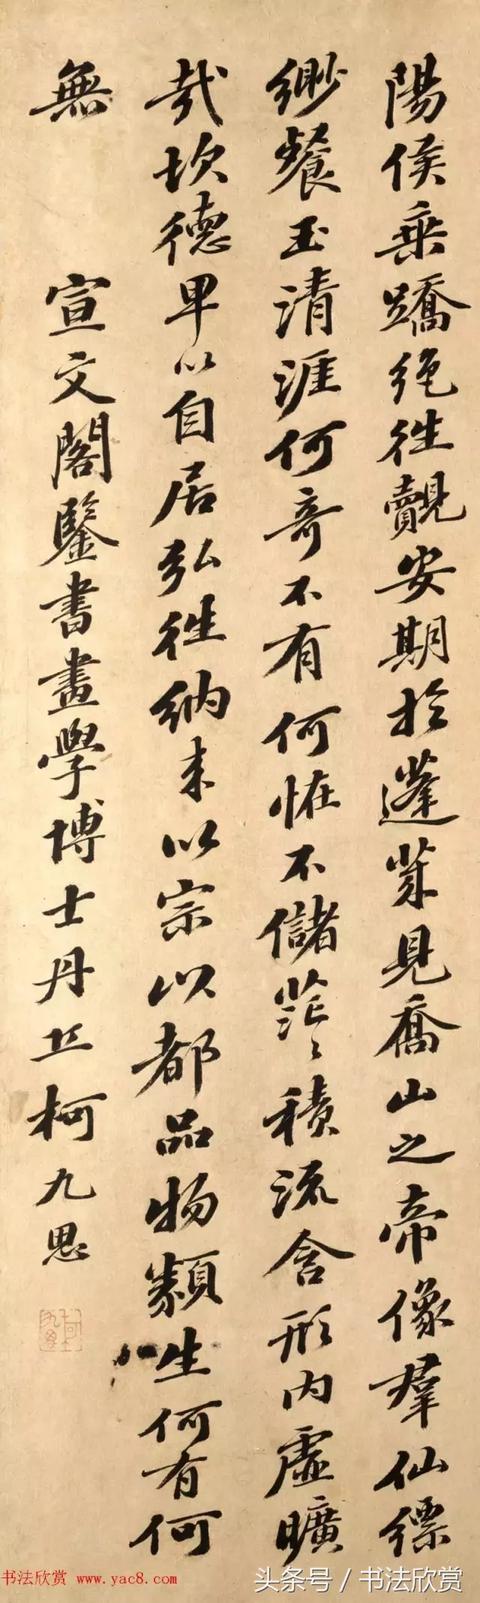 陽侯乗蹻絶往覿安期於蓬莱見喬山之帝像羣仙縹
緲餐玉清涯何奇不有何怪不儲茫〻積流含形内虚曠
哉坎德卑以自居弘往納来以宗以都品物類生何有何
無
宣文閣鑒書畫學博士丹丘柯九思
书法欣赏 www.yac8.com
头条号/书法欣赏